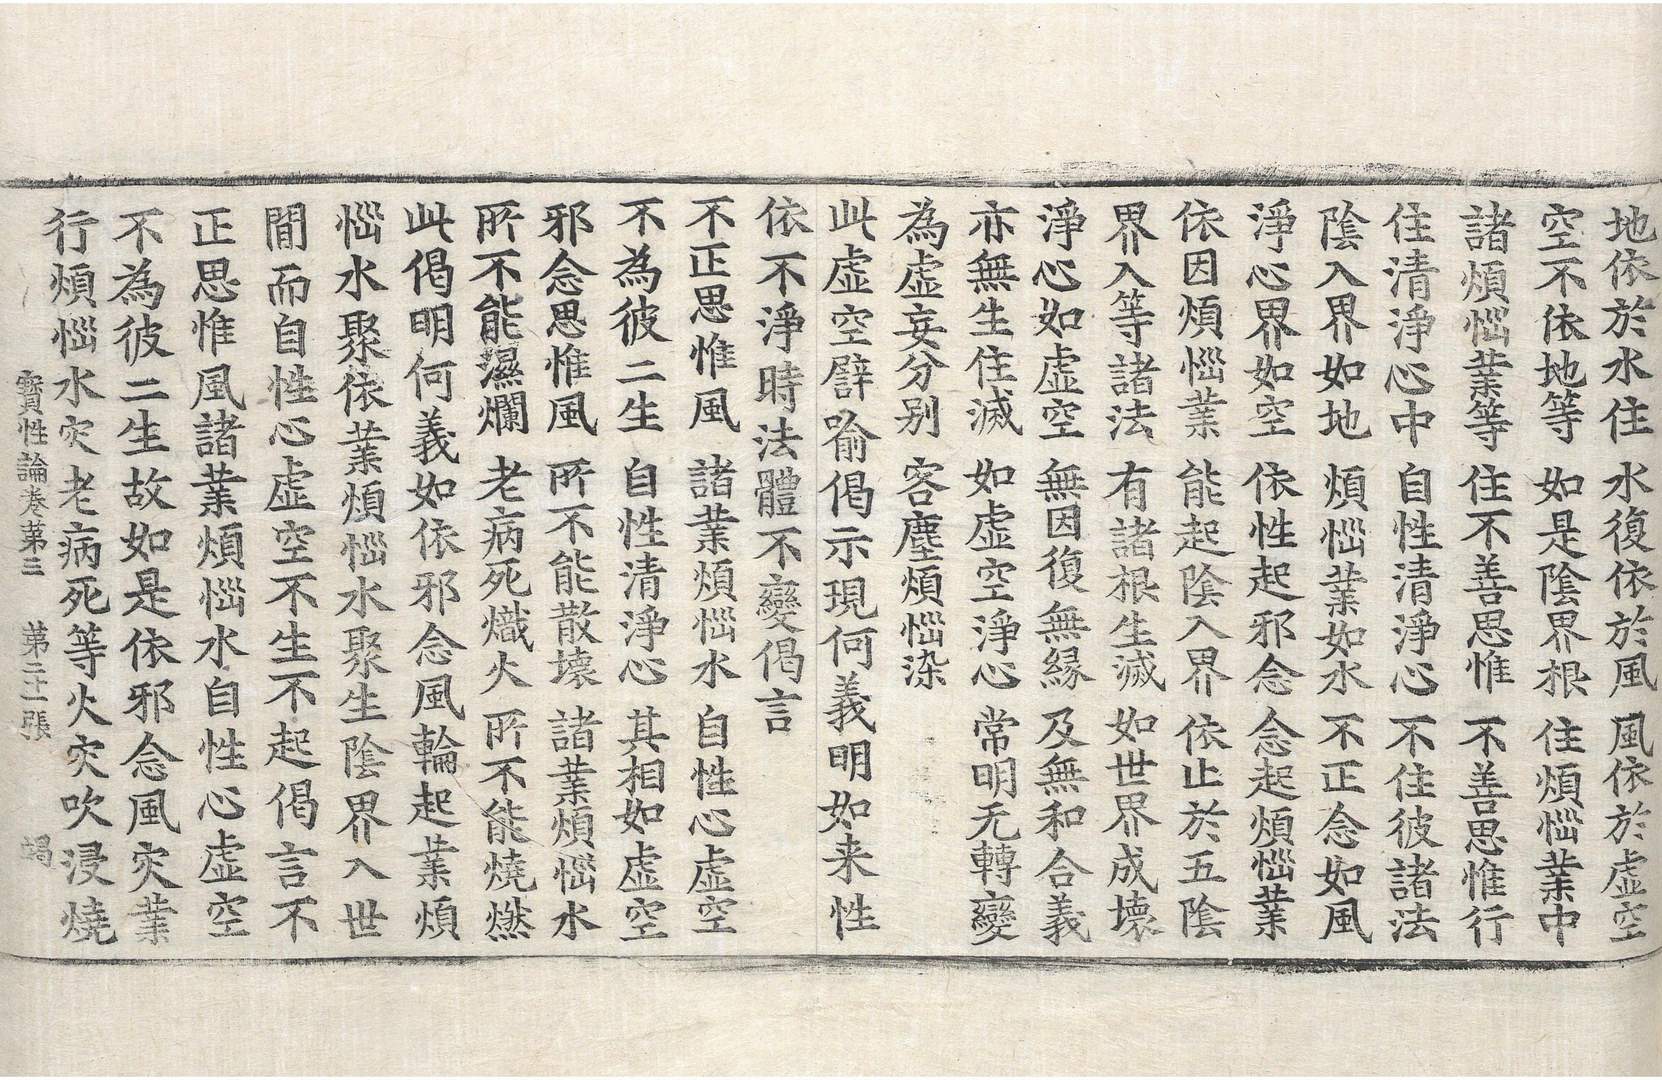 地依於水住　水復依於風　風依於虛空
空不依地等　如是陰界根　住煩惱業中
諸煩惱業等　住不善思惟　不善思惟行
住清淨心中　自性清淨心　不住彼諸法
陰入界如地　煩惱業如水　不正念如風
淨心界如空　依性起邪念　念起煩惱業
依因煩惱業　能起陰入界　依止於五陰
界入等諸法　有諸根生滅　如世界成壞
淨心如虛空　無因復無緣　及無和合義
亦無生住滅　如虛空淨心　常明无轉變
為虛妄分别　客塵煩惱染
此虛空譬喻偈示現何義明如来性
依不淨時法體不變偈言
不正思惟風　諸業煩惱水　自性心虛空
不為彼二生　自性清淨心　其相如虛空
邪念思惟風　所不能散壞　諸業煩惱水
所不能濕爛　老病死熾火　所不能燒燃
此偈明何義如依邪念風輪起業煩
惱水聚依業煩惱水聚生陰界入世
間而自性心虛空不生不起偈言不
正思惟風諸業煩惱水自性心虛空
不為彼二生故如是依邪念風灾業
行煩惱水灾老病死等火灾吹浸燒
寶性論卷苐三　苐二十一張